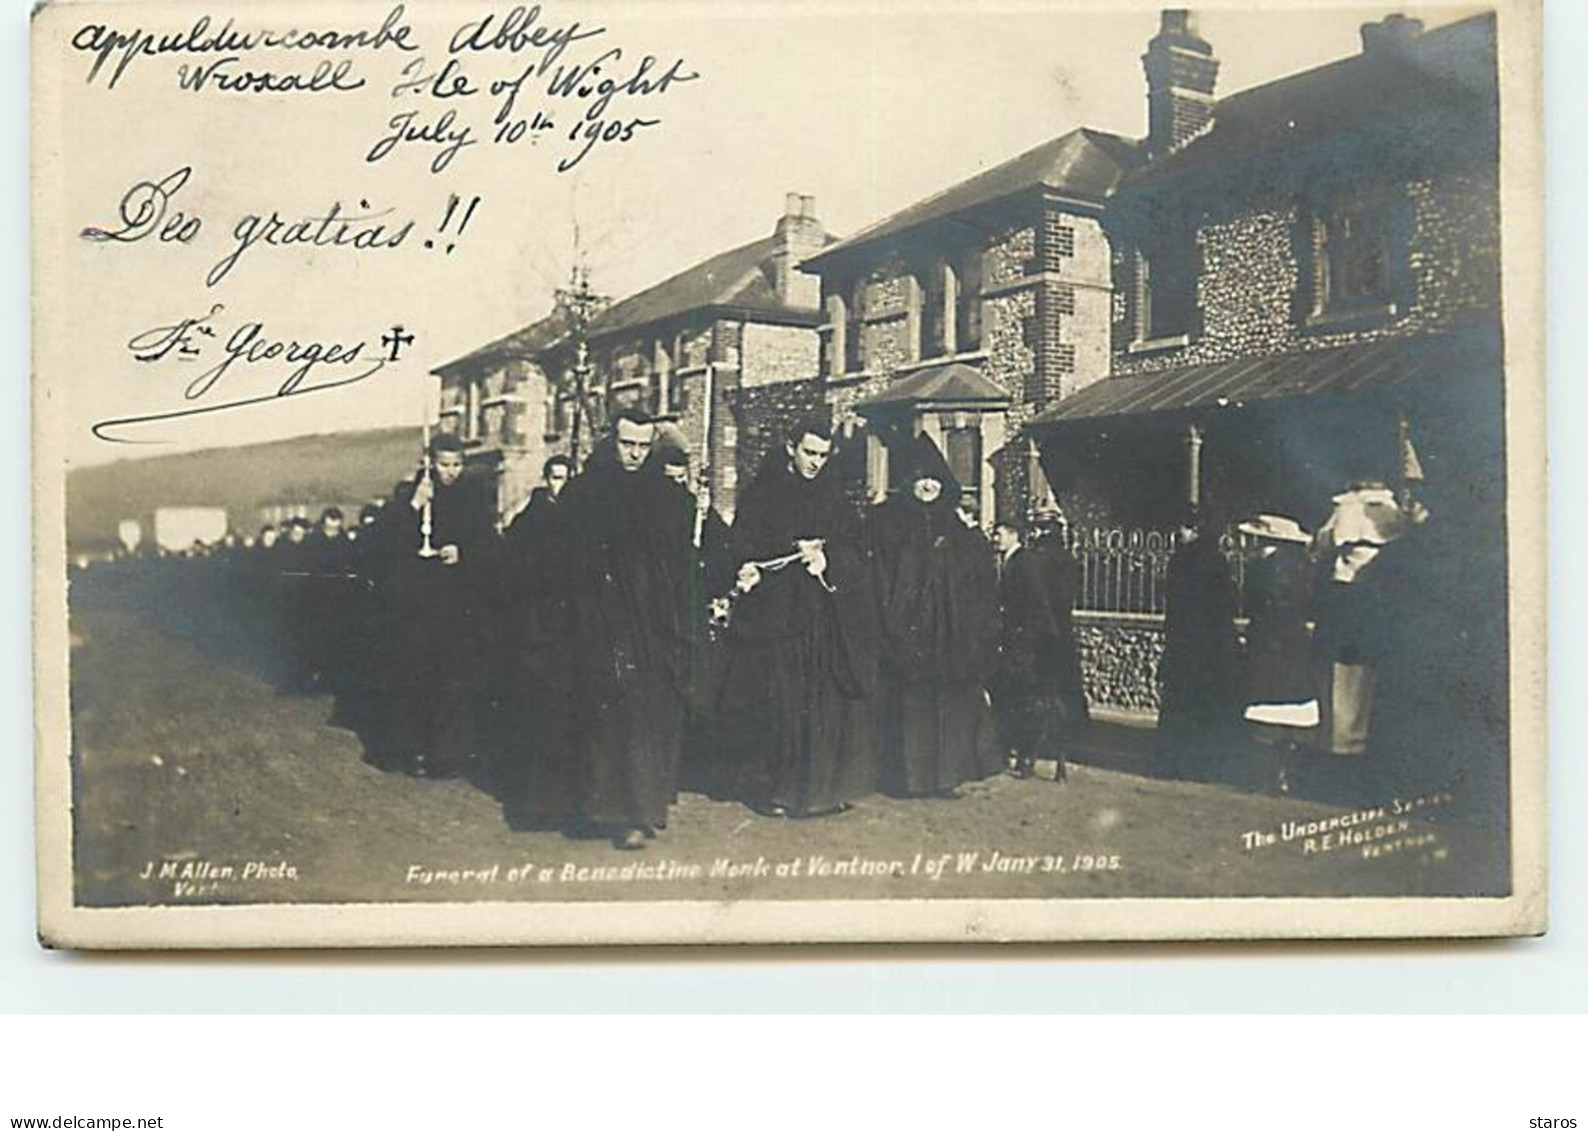 appuldurcombe Abbey
Wroxall Isle of Wight
July 10th 1905
Deo gratias!!
Fre Georges
J. M Allen, Photo,
Funeral of a Benedictine Monk at Ventnor. I of W Jany 31, 1905.
The Undercliff Series
R.E. Holden
Ventnor
www.delcampe.net
staros